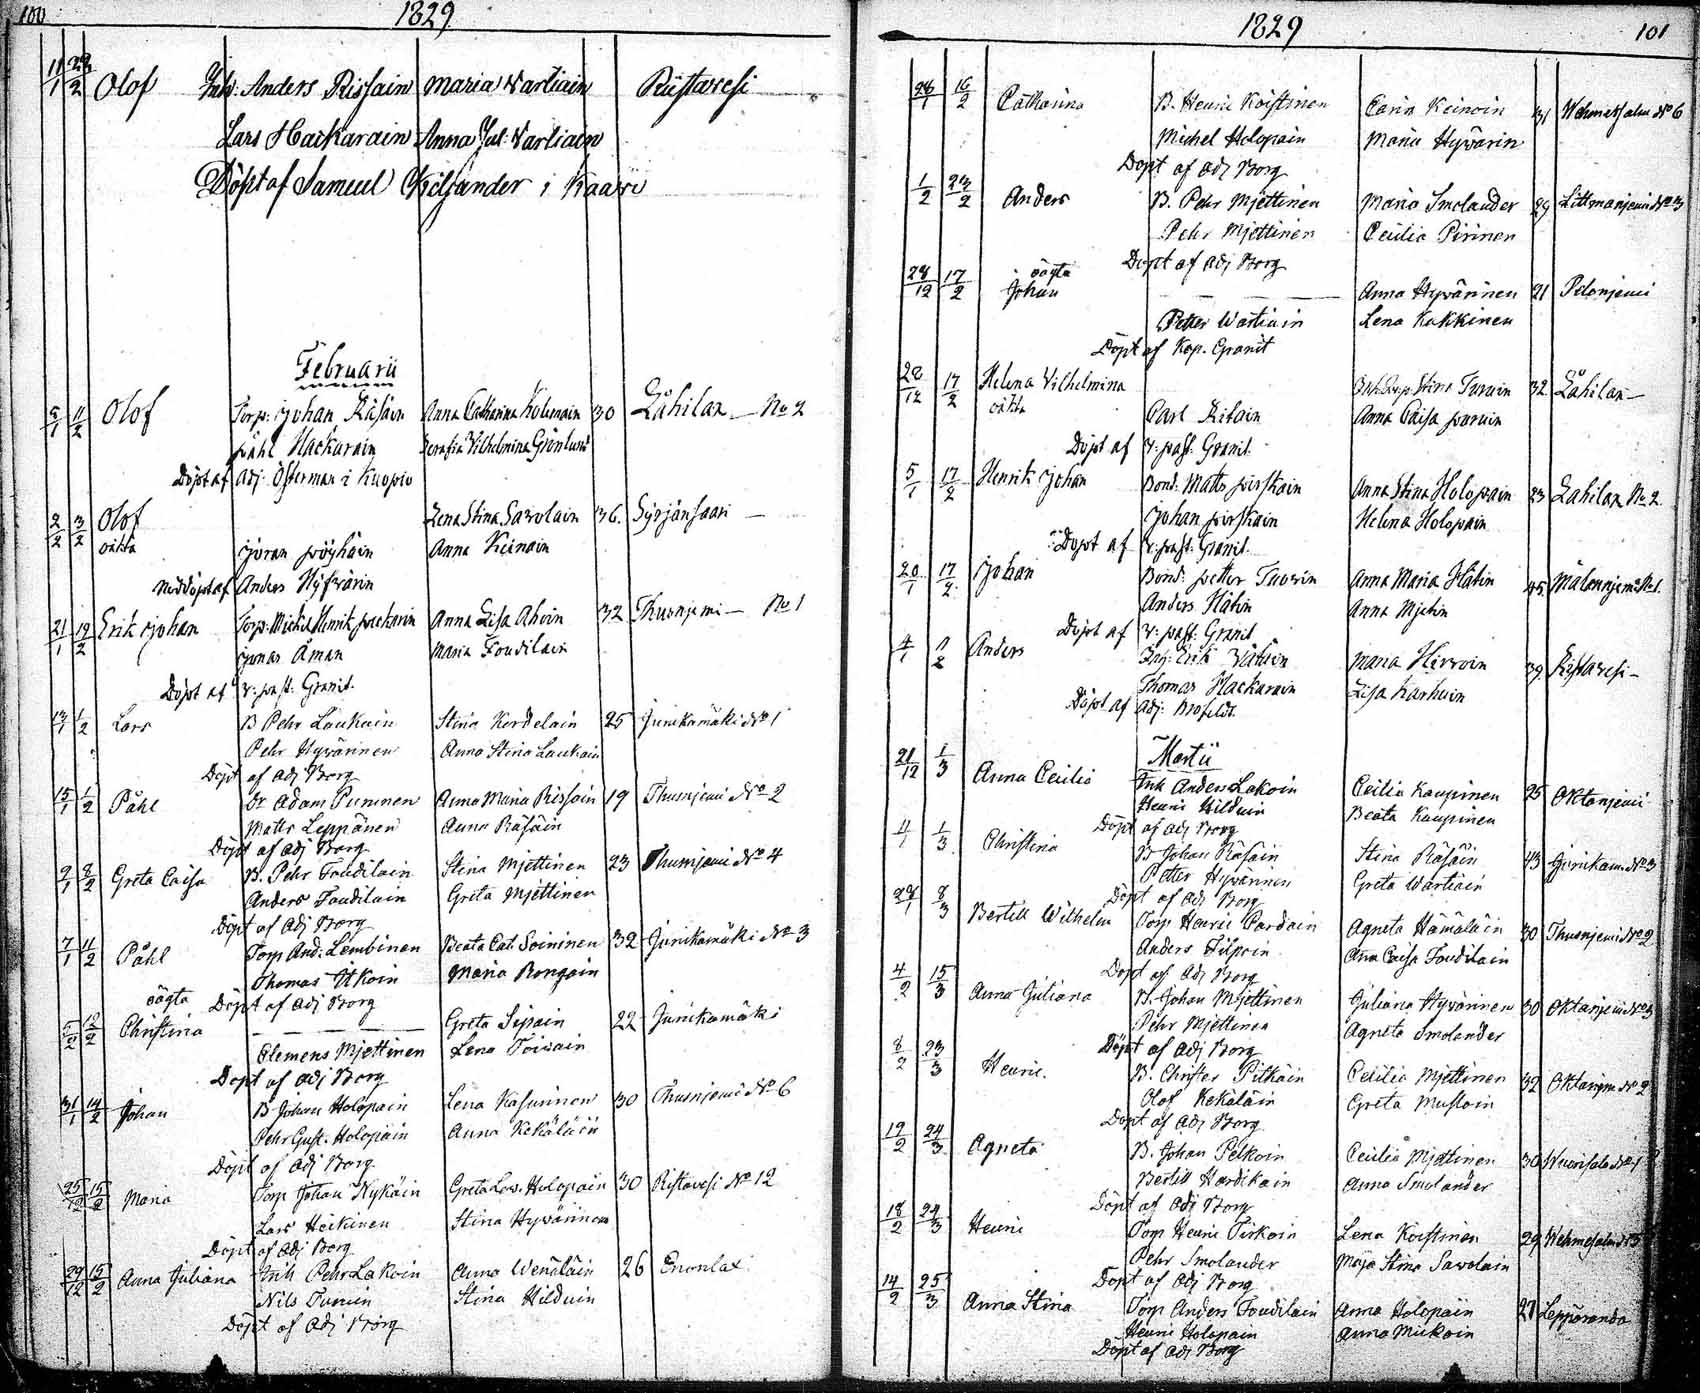 100
1829
11/1 22/2 Olof Inh: Anders Rissain Maria Wartiain Riistavesi
Lars Hackarain Anna Jul: Wartiain
Döpt af Samuel Kiljander i Kaavi
Februarii
5/1 11/2 Olof Torp: Johan Räsäin Anna Catharina Kolemain 30 Låhilax No 2
Påhl Hackarain Serafia Vilhelmina Grönlund
Döpt af Adj: Österman i Kuopio
2/2 3/2 Olof Lena Stina Savolain 36. Syrjänsaari
oäkta Jöran Pöyhöin Anna Keinain
Nöddöpt af Anders Hyfvärin
21/1 19/2 Erik Johan Torp: Michel Henrik Packarin Anna Lisa Ahoin 32 Thusnjemi No 1
Jonas Åman Maria Foudilain
Döpt af V: past: Granit.
13/1 1/2 Lars B Pehr Laukain Stina Kordelain 25 Junikamäki No 1
Pehr Hyvärinen Anna Stina Laukain
Döpt af Adj Borg
15/1 1/2 Påhl Dr Adam Purunen Anna Maria Rissain 19 Thusnjemi No 2
Matts Leppänen Anna Räsäin
Döpt af Adj Borg
9/1 8/2 Greta Caisa B. Pehr Foudilain Stina Mjettinen 23 Thusnjemi No 4
Anders Foudilain Greta Mjettinen
Döpt af Adj Borg
7/1 11/2 Påhl Torp And: Lembinen Beata Cat. Soininen 32 Junikamäki No 3
Thomas Itkoin Maria Rongain
oägta Döpt af Adj Borg
5/2 12/2 Christina Greta Sipain 22 Junikamäki
Clemens Mjettinen Lena Toivain
Döpt af Adj Borg
31/1 14/2 Johan B Johan Holopain Lena Kasurinen 30 Thusnjemi No 6
Pehr Gust. Holopain Anna Kekäläin
Döpt af Adj Borg
25/12 15/2 Maria Torp Johan Nykäin Greta Lov. Holopain 30 Ristavesi No 12
Lars Heikinen Stina Hyvärinen
Döpt af Adj Borg
29/12 15/2 Anna Juliana Inh Pehr Lakoin Anna Wenäläin 26 Enonlax
Nils Turuin Stina Hilduin
Döpt af Adj Borg
1829
101
28/1 16/2 Catharina B. Henric Koistinen Carin Keinoin 31 Wehmersalmi No 6
Michel Holopain Maria Hyvärin
Döpt af Adj Borg
1/2 23/2 Anders B. Pehr Mjettinen Maria Smolander 29 Littmanjemi No 3
Pehr Mjettinen Cecilia Pirinen
Döpt af Adj Borg
28/12 17/2 oägta Johan Anna Hyvärinen 21 Pelonjemi
Petter Wartiain Lena Kukkinen
Döpt af Kap. Granit
28/12 17/2 Helena Vilhelmina Stina Turuin 32 Låhilax
oäkta Carl Ritain Anna Caisa Paruin
Döpt af V: past: Granit.
5/1 17/2 Henrik Johan Bond: Matts Pirskain Anna Stina Holopain 23 Lahilax No 2
Johan Pirskain Helena Holopain
Döpt af V: past: Granit.
20/1 17/2 Johan Bond: Petter Turuin Anna Maria Hätin 45 Mälonnjemi No 1.
Anders Hätin Anna Mjetin
Döpt af V: past: Granit
4/1 Anders Inh: Erik Vätäin Maria Hirvoin 39 Ristavesi
Thomas Hackarain Lisa Karhuin
Döpt af Adj: Brofeldt.
Martii
21/12 1/3 Anna Cecilia Inh Anders Lakoin Cecilia Kaupinen 25 Oktanjemi
Henric Hilduin Beata Kaupinen
Döpt af Adj Borg
4/1 1/3 Christina B Johan Räsäin Stina Räsäin 43 Junikam. No 3
Petter Hyvärinen Greta Wartiain
Döpt af Adj Borg
28/1 8/3 Bertill Wilhelm Torp Henric Pardain Agneta Hämäläin 30 Thusnjemi No 2
Anders Filpoin Ann Caisa Foudilain
Döpt af Adj Borg
4/2 15/3 Anna Juliana B. Johan Mjettinen Juliana Hyvärinen 30 Oktanjemi No 3
Pehr Mjettinen Agneta Smolander
Döpt af Adj Borg
8/2 23/3 Henric. B. Christer Pitkäin Cecilia Mjettinen 32 Oktanjemi No 2
Olof Kekäläin Greta Mustoin
Döpt af Adj Borg
19/2 24/3 Agneta B. Johan Pelkoin Cecilia Mjettinen 30 Wuorisalo No 1
Bertill Hardikain Anna Smolander
Döpt af Adj Borg
18/2 24/3 Henric Torp Henric Pirkoin Lena Koistinen 29 Wehmersalmi No 5
Pehr Smolander Maja Stina Savolain
Döpt af Adj Borg
14/2 25/3 Anna Stina Torp Anders Foudilain Anna Holopain 27 Leppäranda
Henric Holopain Anna Mickoin
Döpt af Adj Borg